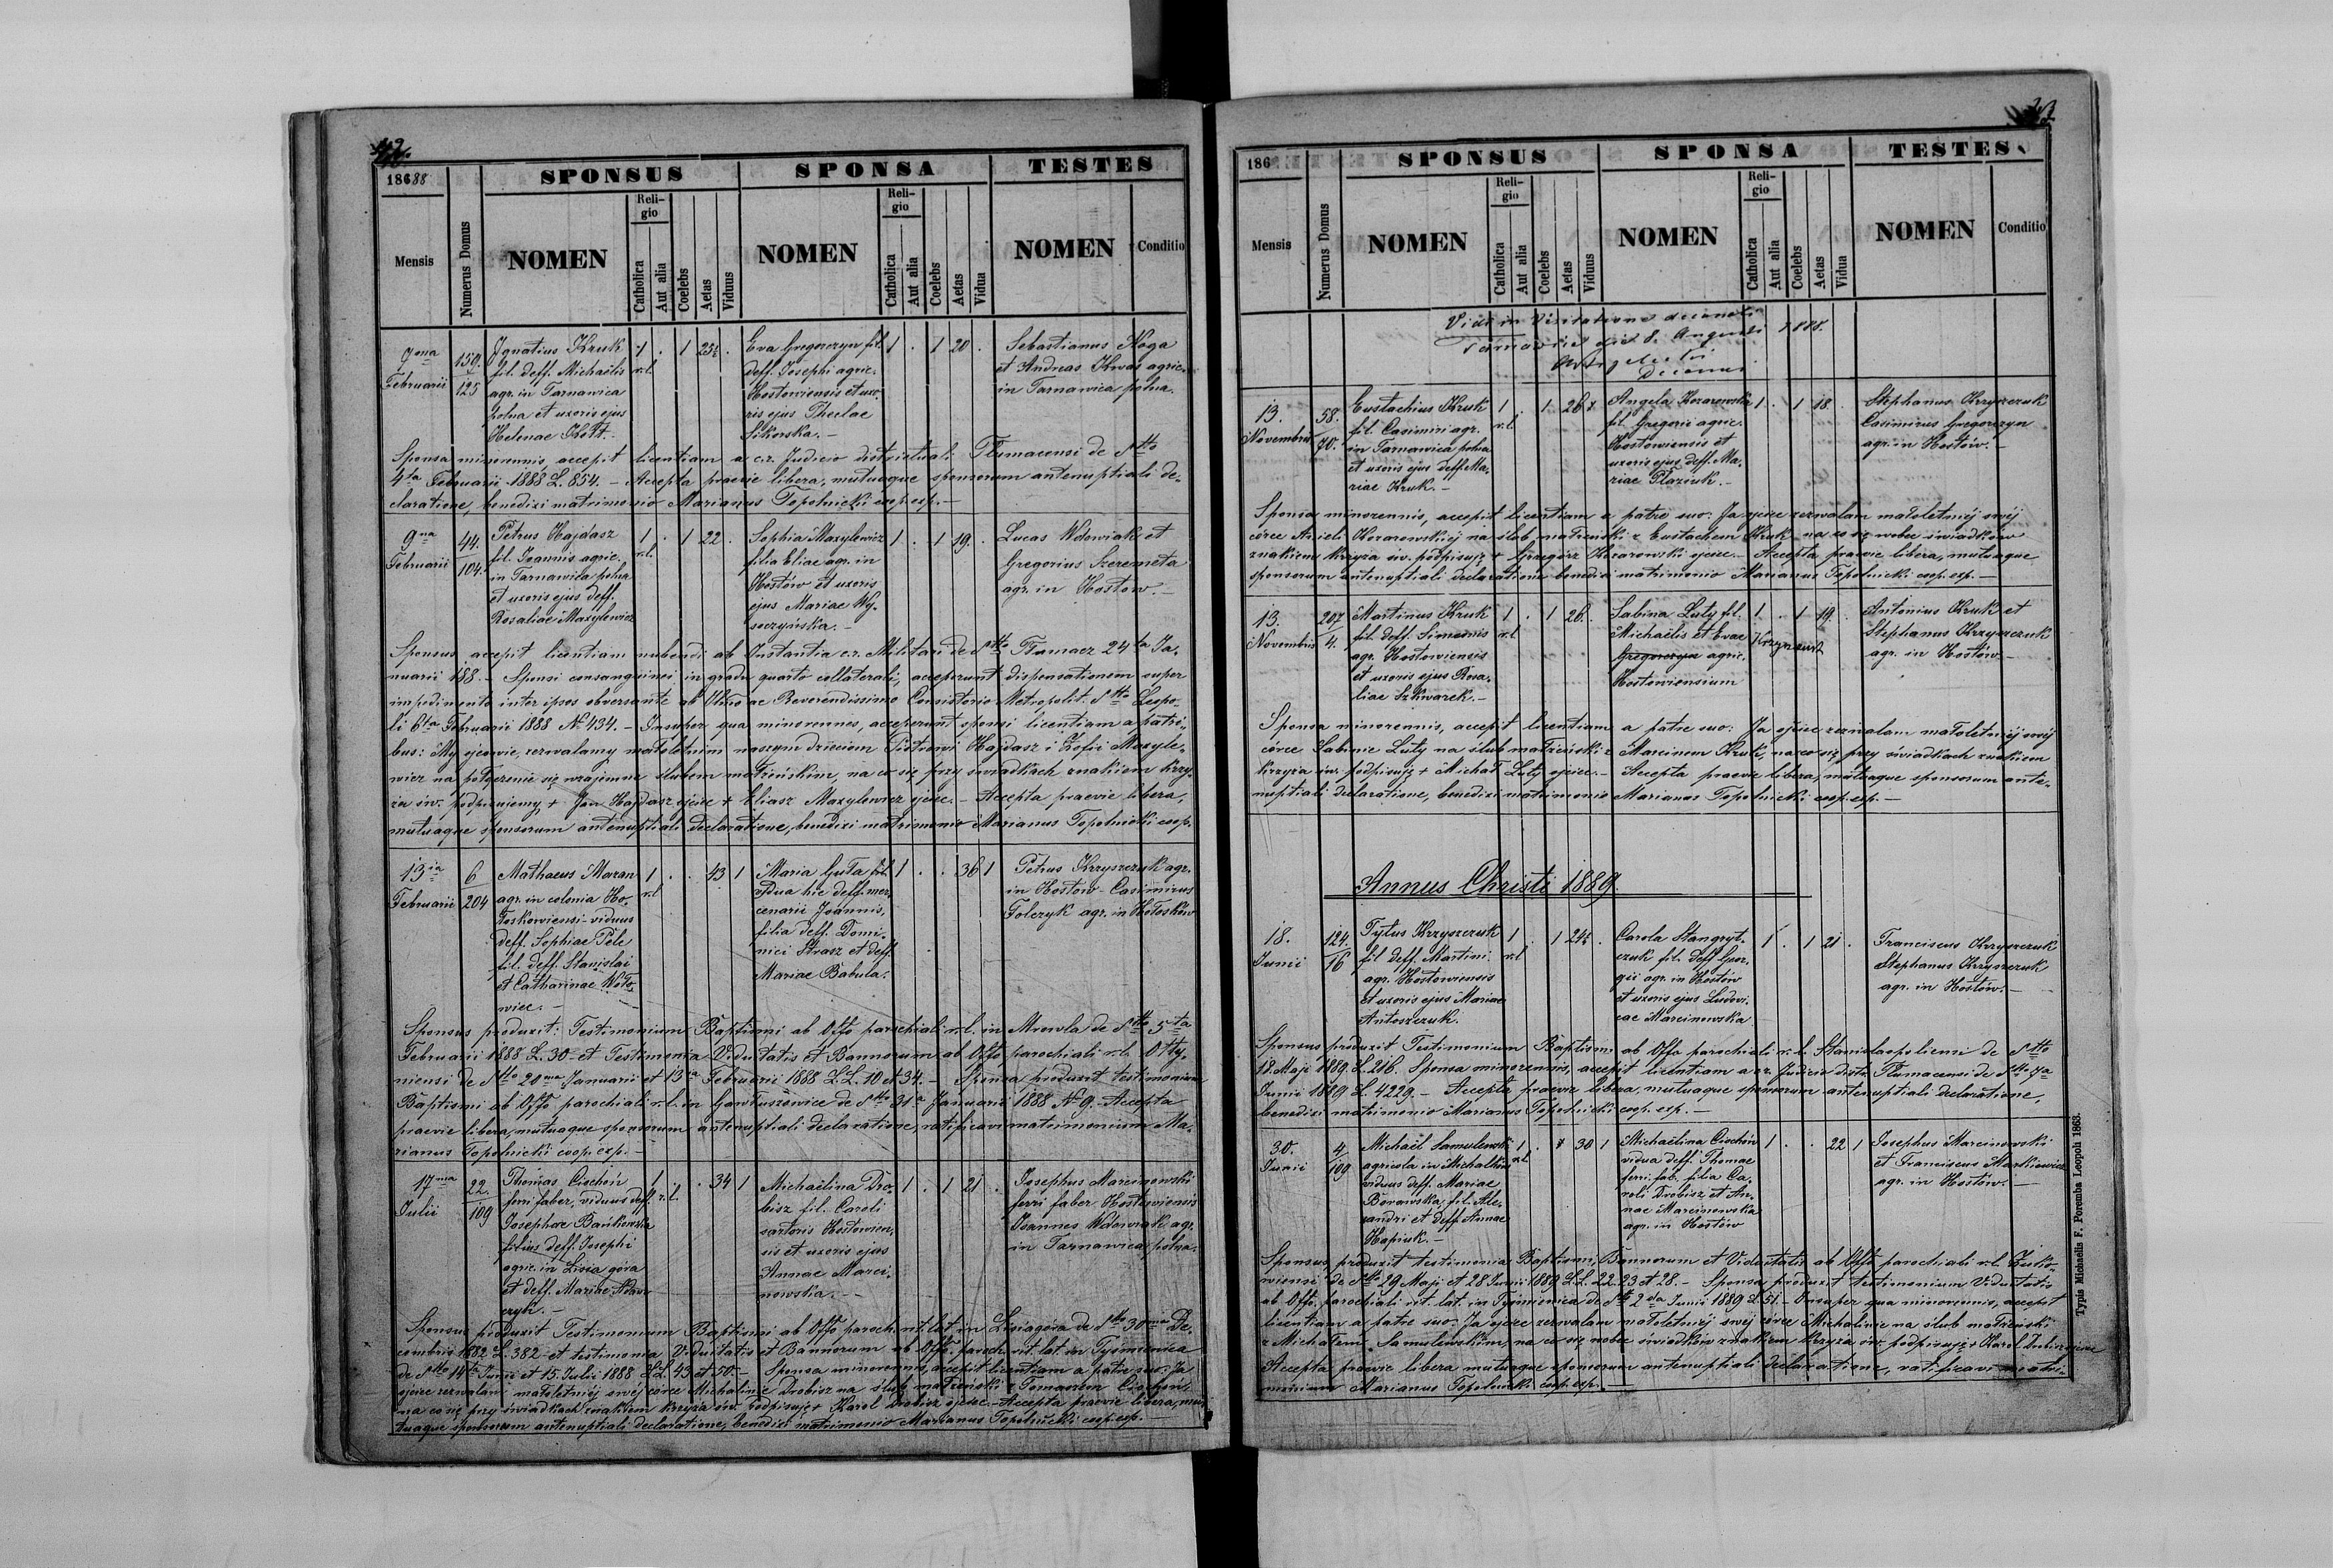 42.
18688
SPONSUS
SPONSA
TESTES
Mensis
Numerus Domus
NOMEN
Religio
Catholica
Aut alia
Coelebs
Aetas
Viduus
NOMEN
Religio
Catholica
Aut alia
Coelebs
Aetas
Vidua
NOMEN
Conditio
7ma Februarii
159.
125
Ignatius Kruk
fil. deff. Michaelis
agr. in Tarnawica
polna et uxoris ejus
Helenae Kott.
1 r.l
. 1 25½ .
Eva Gregorczyn fil.
deff. Josephi agric.
Hostowiensis et uxo-
ris ejus Theclae
Sikorska.-
1 . 1 20 .
Sebastianus Noga
et Andreas Kwas agric.
in Tarnawica polna.
Sponsa minorennis accepit licentiam a c.r. Judicio districtuali Tłumacensi de dtto
4ta Februarii 1888 L. 854. - Accepta praevie libera, mutuaque sponsorum antenuptiali de-
claratione, benedixi matrimonio Marianus Topolnicki coop. exp.-
9na Februarii
44.
104.
Petrus Hajdasz
fil. Joannis agric.
in Tarnawica polna
et uxoris ejus deff.
Rosaliae Maxylewicz
1 r.l.
. 1 22 .
Sophia Maxylewicz
filia Eliae agr. in
Hostów et uxoris
ejus Mariae Wy-
soczyńska.-
1 . 1 19. .
Lucas Wdowiak et
Gregorius Szeremeta
agr. in Hostow.-
Sponsus accepit licentiam nubendi ab Instantia c.r. Militari de dtto Tłumacz 24ta Ja-
nuarii 188.- Sponsi consanguinei in gradu quarto collaterali, acceperunt dispensationem super
impedimento inter ipsos obversante ab Illmo ac Reverendissimo Consistorio Metropolit. dtto Leopo-
li 6ta Februarii 1888 No 434. - Insuper qua minorennes, acceperunt sponsi licentiam a patri-
bus: My ojcowie, zezwalamy małoletnim naszym dzieciom Piotrowi Hajdasz i Zofii Maxyle-
wicz na połączenie się wzajemne ślubem małżeńskim, na co się przy świadkach znakiem krzy-
ża św. podpisujemy + Jan Hajdasz ojciec + Eliasz Maxylewicz ojciec.- Accepta praevie libera,
mutuaque sponsorum antenuptiali declaratione, benedixi matrimonio Marianus Topolnicki coop.
13ia Februarii
6
204
Mathaeus Mazan
agr. in colonia Ho-
łoskowiensi- viduus
deff. Sophiae Pele
fil. deff. Stanislai
et Catharinae Woło-
wiec.-
1 r.l
. . 43 1
Maria Guła fil.
vidua hic deff. mer-
cenarii Joannis,
filia deff. Domi-
nici Strasz et deff.
Mariae Babula.
1 . . 36 1
Petrus Krzyszczuk agr.
in Hostow- Casimirus
Tolczyk agr. in Hołosków
Sponsus produxit: Testimonium Baptismi ab Offo parochiali r.l. in Mrowla de dtto 5ta
Februarii 1888 L. 30 et Testimonia Viduitatis et Bannorum ab Offo parochiali r.l. Otty-
niensi de dtto 20ma Januarii et 13ia Februarii 1888 L.L. 10 et 34.- Sponsa produxit testimonium
Baptismi ab Offo parochiali r.l. in Gawłuszowice de dtto 31a Januarii 1888 No 9. Accepta
praevie libera, mutuaque sponsorum antenuptiali declaratione, ratificavi matrimonium Ma-
rianus Topolnicki coop. exp.-
17ma Julii
22.
109
Thomas Ciochoń
ferri faber, viduus deff.
Josephae Bańkowska
filius deff. Josephi
agric. in Lisia góra
et deff. Mariae
czyk.-
1 r.l.
. . 34 1
Michaëlina Dro-
bisz fil. Caroli
sartoris Hostowien-
sis et uxoris ejus
Annae Marci-
nowska.-
1 . 1 21 .
Josephus Marcinowski
ferri faber Hostowiensis
Joannes Wdowiak agr.
in Tarnawica polna.
Sponsus produxit Testimonium Baptismi ab Offo paroch. rit. lat. in Lisiagóra de dtto 30ma De-
cembris 1882 L. 382 et testimonia Viduitatis et Bannorum ab Offo paroch. rit. lat. in Tyśmienica
de dtto 14ta Junii et 15 Julii 1888 LL. 43 et 50.- Sponsa minorennis, accepit licentiam a patre suo: Ja
ojciec zezwalam małoletniej swej córce Michalinie Drobisz na ślub małżeński z Tomaszem Ciochoń,
na co się przy świadkach znakiem krzyża św. podpisuję + Karol Drobisz ojciec.- Accepta praevie libera, mu-
tuaque sponsorum antenuptiali declaratione, benedixi matrimonio Marianus Topolnicki coop. exp.-
186
SPONSUS
SPONSA
TESTES
Mensis
Numerus Domus
NOMEN
Religio
Catholica
Aut alia
Coelebs
Aetas
Viduus
NOMEN
Religio
Catholica
Aut alia
Coelebs
Aetas
Vidua
NOMEN
Conditio
Vidi in Visitatione decanali
die 8. Augusti 1888.
13. Novembris
58.
70.
Eustachius Kruk
fil. Casimiri agr.
in Tarnawica polna
et uxoris ejus deff. Ma-
riae Kruk.-
1 r.l
. 1 26
Angela Kozarowska
fil. Gregorii agric.
Hostowiensis et
uxoris ejus deff. Ma-
riae Płaziuk.-
1 . 1 18. .
Stephanus Krzyszczuk
Casimirus Gregorczyn
agr. in Hostów.-
Sponsa minorennis, accepit licentiam a patre suo: Ja ojciec zezwalam małoletniej swej
córce Anieli Kozarowskiej na ślub małżeński z Eustachem Kruk- na co się wobec świadków
znakiem krzyża św. podpisuję + Grzegórz Kozarowski ojciec- Accepta praevie libera, mutuaque
sponsorum antenuptiali declaratione benedixi matrimonio Marianus Topolnicki coop. exp.-
13. Novembris
207
4.
Martinus Kruk
fil. deff. Simeonis
agr. Hostowiensis
et uxoris ejus Rosa-
liae Szkwarek.-
1 r.l
. 1 26. .
Sabina Luty fil.
Michaëlis et Evae
Gregorczyn agric.
Hostowiensium
1 . 1 19. .
Antonius Kruk et
Stephanus Krzyszczuk
agr. in Hostów-
Sponsa minorennis, accepit licentiam a patre suo: Ja ojciec zezwalam małoletniej swej
córce Sabinie Luty na ślub małżeński z Marcinem Kruk, na co się przy świadkach znakiem
krzyża św. podpisuję + Michał Luty ojciec.- Accepta praevie libera, mutuaque sponsorum ante-
nuptiali declaratione, benedixi matrimonio Marianus Topolnicki coop. exp.-
Annus Christi 1889.
18. Junii
124.
16
Tytus Krzyszczuk
fil deff. Martini
agr. Hostowiensis
et uxoris ejus Mariae
Antoszczuk.
1 r.l
. 1 24½ .
Carola Stangryt-
czuk fil. deff Geor-
gii agr. in Hostów
et uxoris ejus Ludovi-
cae Marcinowska
1 . 1 21 .
Franciscus Krzyszczuk
Stephanus Krzyszczuk
agr. in Hostów.-
Sponsus produxit Testimonium Baptismi ab Offo parochiali r.l. Stanislaopoliensi de dtto
18. Maji 1889 L. 216. Sponsa minorennis, accepit licentiam a c.r. Judicio distr. Tłumacensi de dtto 7a
Junii 1889 L. 4229.- Accepta praevie libera, mutuaque sponsorum antenuptiali declaratione,
benedixi matrimonio Marianus Topolnicki coop. exp.-
30. Junii
4
109
Michaël Samulewski
agricola in Michałków
viduus deff. Mariae
Borawska, fil. Ale-
xandri et deff Annae
Hapiuk.-
1 r.l
. 30 1
Michaëlina Ciochoń
vidua deff. Thomae
ferri fab. filia Ca-
roli Drobisz et An-
nae Marcinowska
agr. in Hostów
1 . . 22 1
Josephus Marcinowski
et Franciscus Markiewicz
agr. in Hostow.-
Sponsus produxit testimonia Baptismi, Bannorum et Viduitatis ab Offo parochiali r.l.
wiensi de dtto 29 Maji et 28 Junii 1889 LL. 22. 23 et 28.- Sponsa produxit testimonium Viduitatis
ab Offo. parochiali rit. lat. in Tyśmienica de dtto 2da Junii 1889 L. 51.- Insuper qua minorennis, accepit
licentiam a patre suo: Ja ojciec zezwalam małoletniej swej córce Michalinie na ślub małżeński
z Michałem Samulewskim, na co się wobec świadków znakiem krzyża św. podpisuję + Karol Drobisz ojciec
Accepta praevie libera mutuaque sponsorum antenuptiali declaratione, ratificavi matri-
monium Marianus Topolnicki coop. exp.-
Typis Michaelis F. Poremba Leopoli 1863.